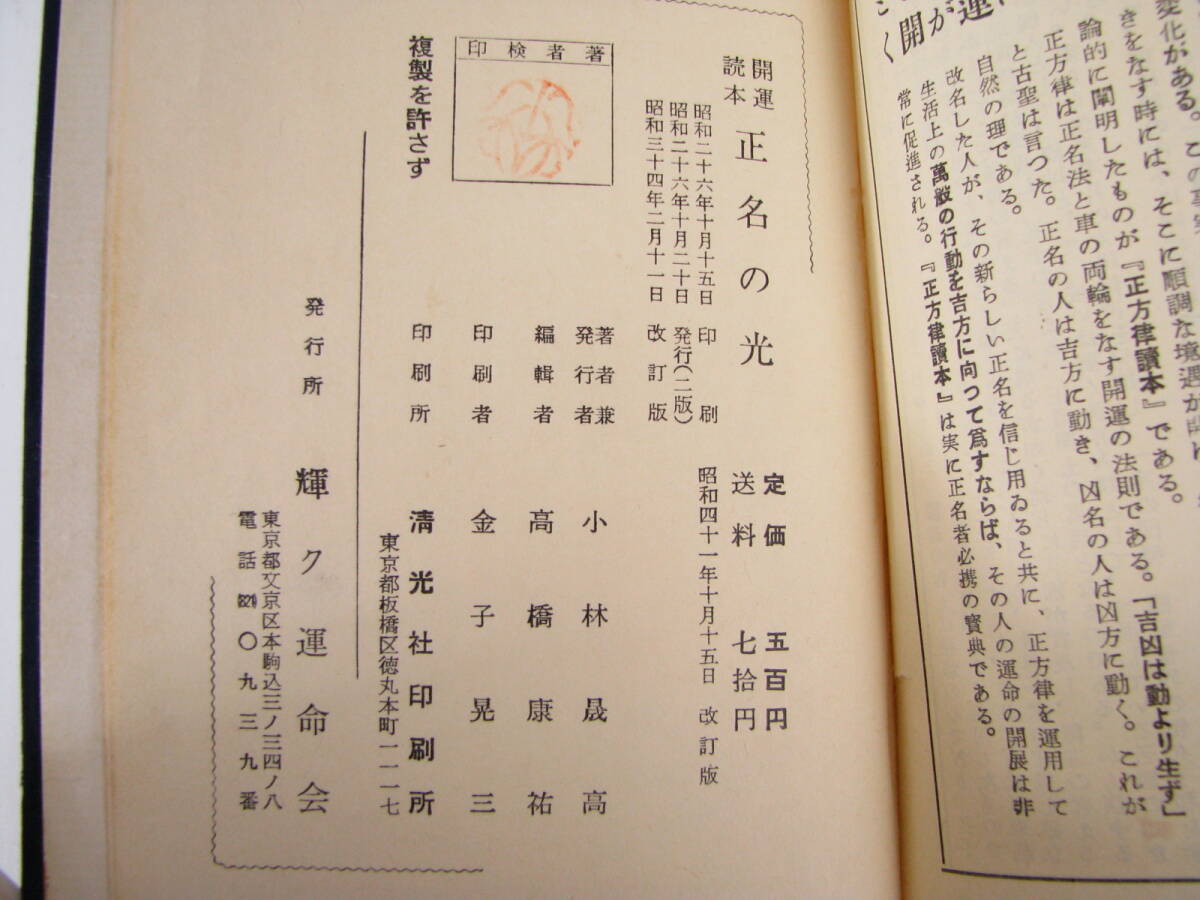 く開が運
変化がある。この事実
きをなす時には、そこに順調な境遇が
論的に闡明したものが『正方律讀本』である。「吉凶は動より生ず」
正方律は正名法と車の両輪をなす開運の法則である。
と古聖は言つた。正名の人は吉方に動き、凶名の人は凶方に動く。これが
自然の理である。
改名した人が、その新らしい正名を信じ用ゐると共に、正方律を運用して
生活上の萬般の行動を吉方に向つて爲すならば、その人の運命の開展は非
常に促進される。『正方律讀本』は実に正名者必携の寶典である。
定価 五百円
送料 七拾円
開運読本 正名の光
昭和二十六年十月十五日 印刷
昭和二十六年十月二十日 発行(二版)
昭和三十四年二月十一日 改訂版
昭和四十一年十月十五日 改訂版
著者兼発行者 小林晟高
編輯者 高橋康祐
印刷者 金子晃三
印刷所 淸光社印刷所
東京都板橋区徳丸本町一一一七
著者検印
複製を許さず
発行所 輝ク運命会
東京都文京区本駒込三ノ三四ノ八
電話(821)〇九三九番